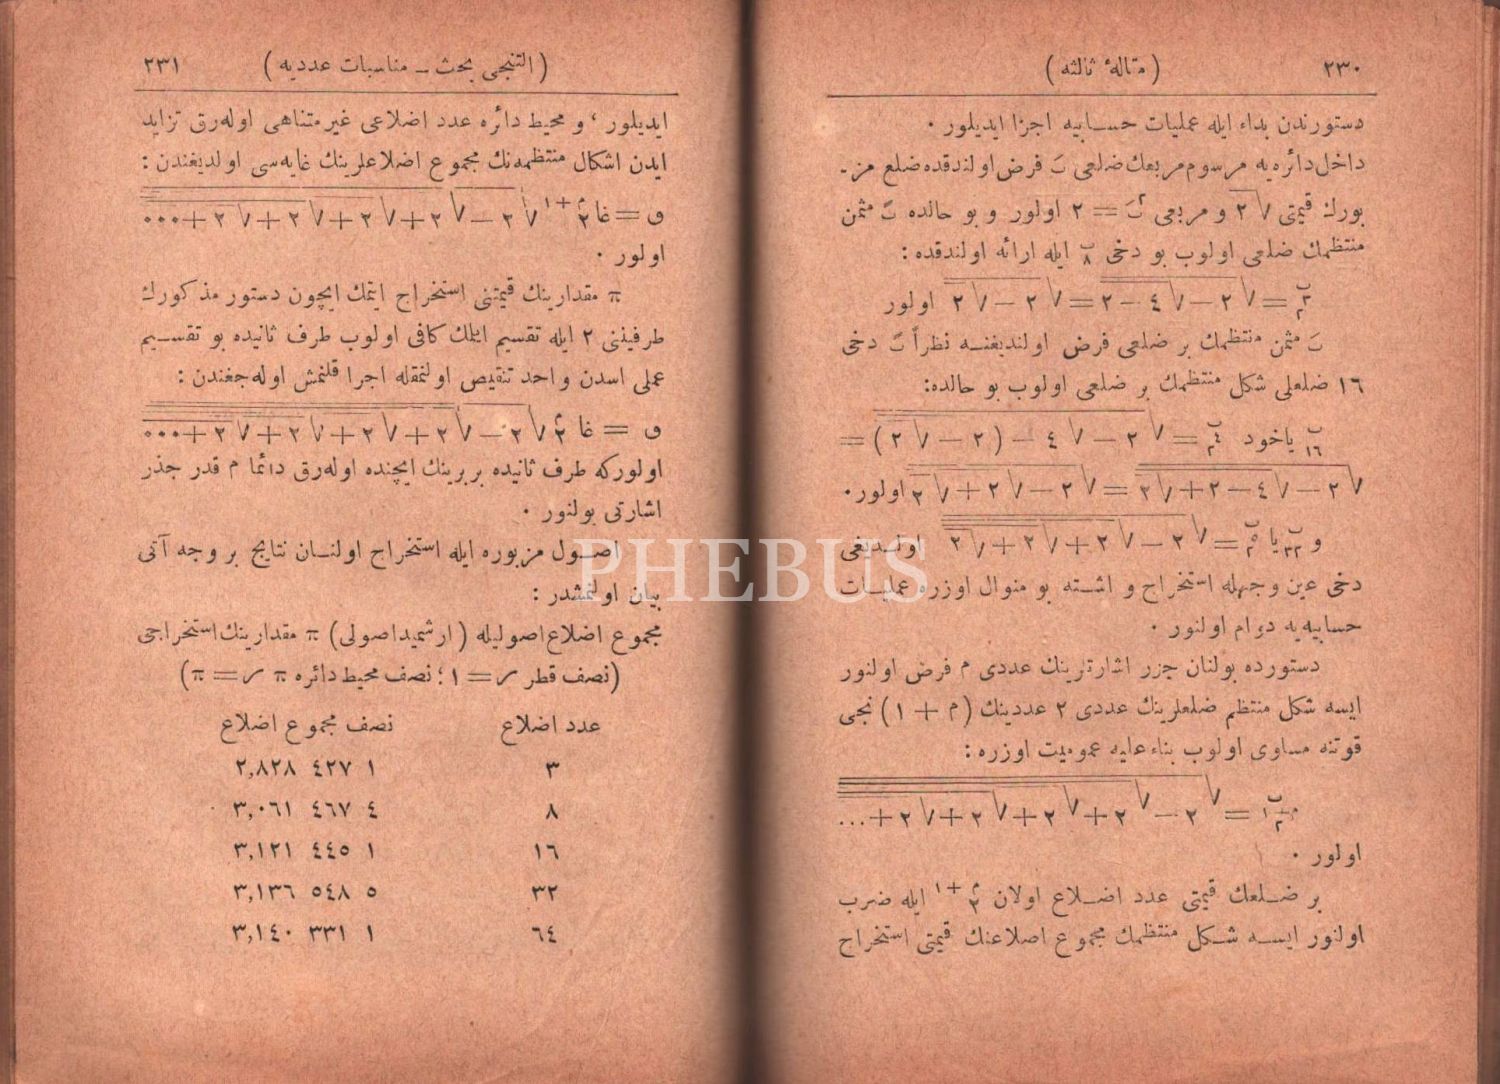 ٢٣٠
( مقالهٔ ثالثه )
دستورندن بداء ایله عملیات حسابیه اجرا ایدیلور ·
داخل دائره‌یه مرسوم مربعك ضلعی بَ فرض اولندقده ضلع مز-
بورك قیمتی √٢ و مربعی بَ٢ = ٢ اولور و بو حالده بً مثمن
منتظمك ضلعی اولوب بو دخی ب٨ ایله ارائه اولندقده :
= √٢ − √٤ − ٢ = √٢ − √٢ اولور
بَ مثمن منتظمك بر ضلعی فرض اولندیغنه نظراً بً دخی
١٦ ضلعلی شكل منتظمك بر ضلعی اولوب بو حالده:
ب١٦ یاخود = √٢ − √٤ − (٢ − √٢) =
√٢ − √٤ − ٢ + √٢ = √٢ − √٢ + √٢ اولور·
و ب٣٢ یا = √٢ − √٢ + √٢ + √٢ اولدیغی
دخی عین وجهله استخراج و اشته بو منوال اوزره عملیات
حسابیه‌یه دوام اولنور ·
دستورده بولنان جزر اشارتلرینك عددی م فرض اولنور
ایسه شكل منتظم ضلعلرینك عددی ٢ عددینك ( م + ١ ) نجی
قوتنه مساوی اولوب بناء علیه عمومیت اوزره :
= √٢ − √٢ + √٢ + √٢ + √٢ + ...
اولور ·
بر ضلعك قیمتی عدد اضلاع اولان ٢ م + ١ ایله ضرب
اولنور ایسه شكل منتظمك مجموع اضلاعنك قیمتی استخراج
( التنجی بحث — مناسبات عددیه )
٢٣١
ایدیلور ، و محیط دائره عدد اضلاعی غیر متناهی اوله‌رق تزاید
ایدن اشكال منتظمه‌نك مجموع اضلاعلرینك غایه‌سی اولدیغندن :
و = غا ٢ م + ١ √٢ − √٢ + √٢ + √٢ + √٢ + ٠٠٠
اولور ·
π مقدارینك قیمتنی استخراج ایتمك ایچون دستور مذكورك
طرفیننی ٢ ایله تقسیم ایلمك كافی اولوب طرف ثانیده بو تقسیم
عملی اسدن واحد تنقیص اولنمقله اجرا قلنمش اوله‌جغندن :
و = غا ٢ م √٢ − √٢ + √٢ + √٢ + √٢ + ٠٠٠
اولوركه طرف ثانیده بربرینك ایچنده اوله‌رق دائما م قدر جذر
اشارتی بولنور ·
اصول مزبوره ایله استخراج اولنان نتایج بر وجه آتی
بیان اولنمشدر :
مجموع اضلاع اصولیله ( ارشمید اصولی ) π مقدارینك استخراجی
(نصف قطر ر = ١ ؛ نصف محیط دائره π ر = π)
عدد اضلاع نصف مجموع اضلاع
٣ ٢,٨٢٨ ٤٢٧ ١
٨ ٣,٠٦١ ٤٦٧ ٤
١٦ ٣,١٢١ ٤٤٥ ١
٣٢ ٣,١٣٦ ٥٤٨ ٥
٦٤ ٣,١٤٠ ٣٣١ ١
PHEBUS